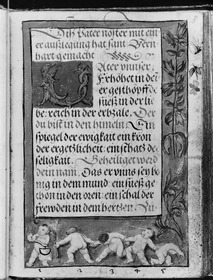 Diß Vater noster mit ein
er außlegung hat sant Bern
hart gemacht
Ater vnnser.
Erhöhet in der
geschöpff.
süeß in der lie
be. reich in der erbzale. Der
du bist in den himeln. Ein
spiegel der ewigkait ein kron
der ergetzlicheit. ein schatz der
seligkait. Geheiliget werd
dein nam. Das er vnns sey ho
nig in dem mund. ein süeß ge
thön in den oren. ein schal der
frewden in dem hertzen.
1 2 3 4 5